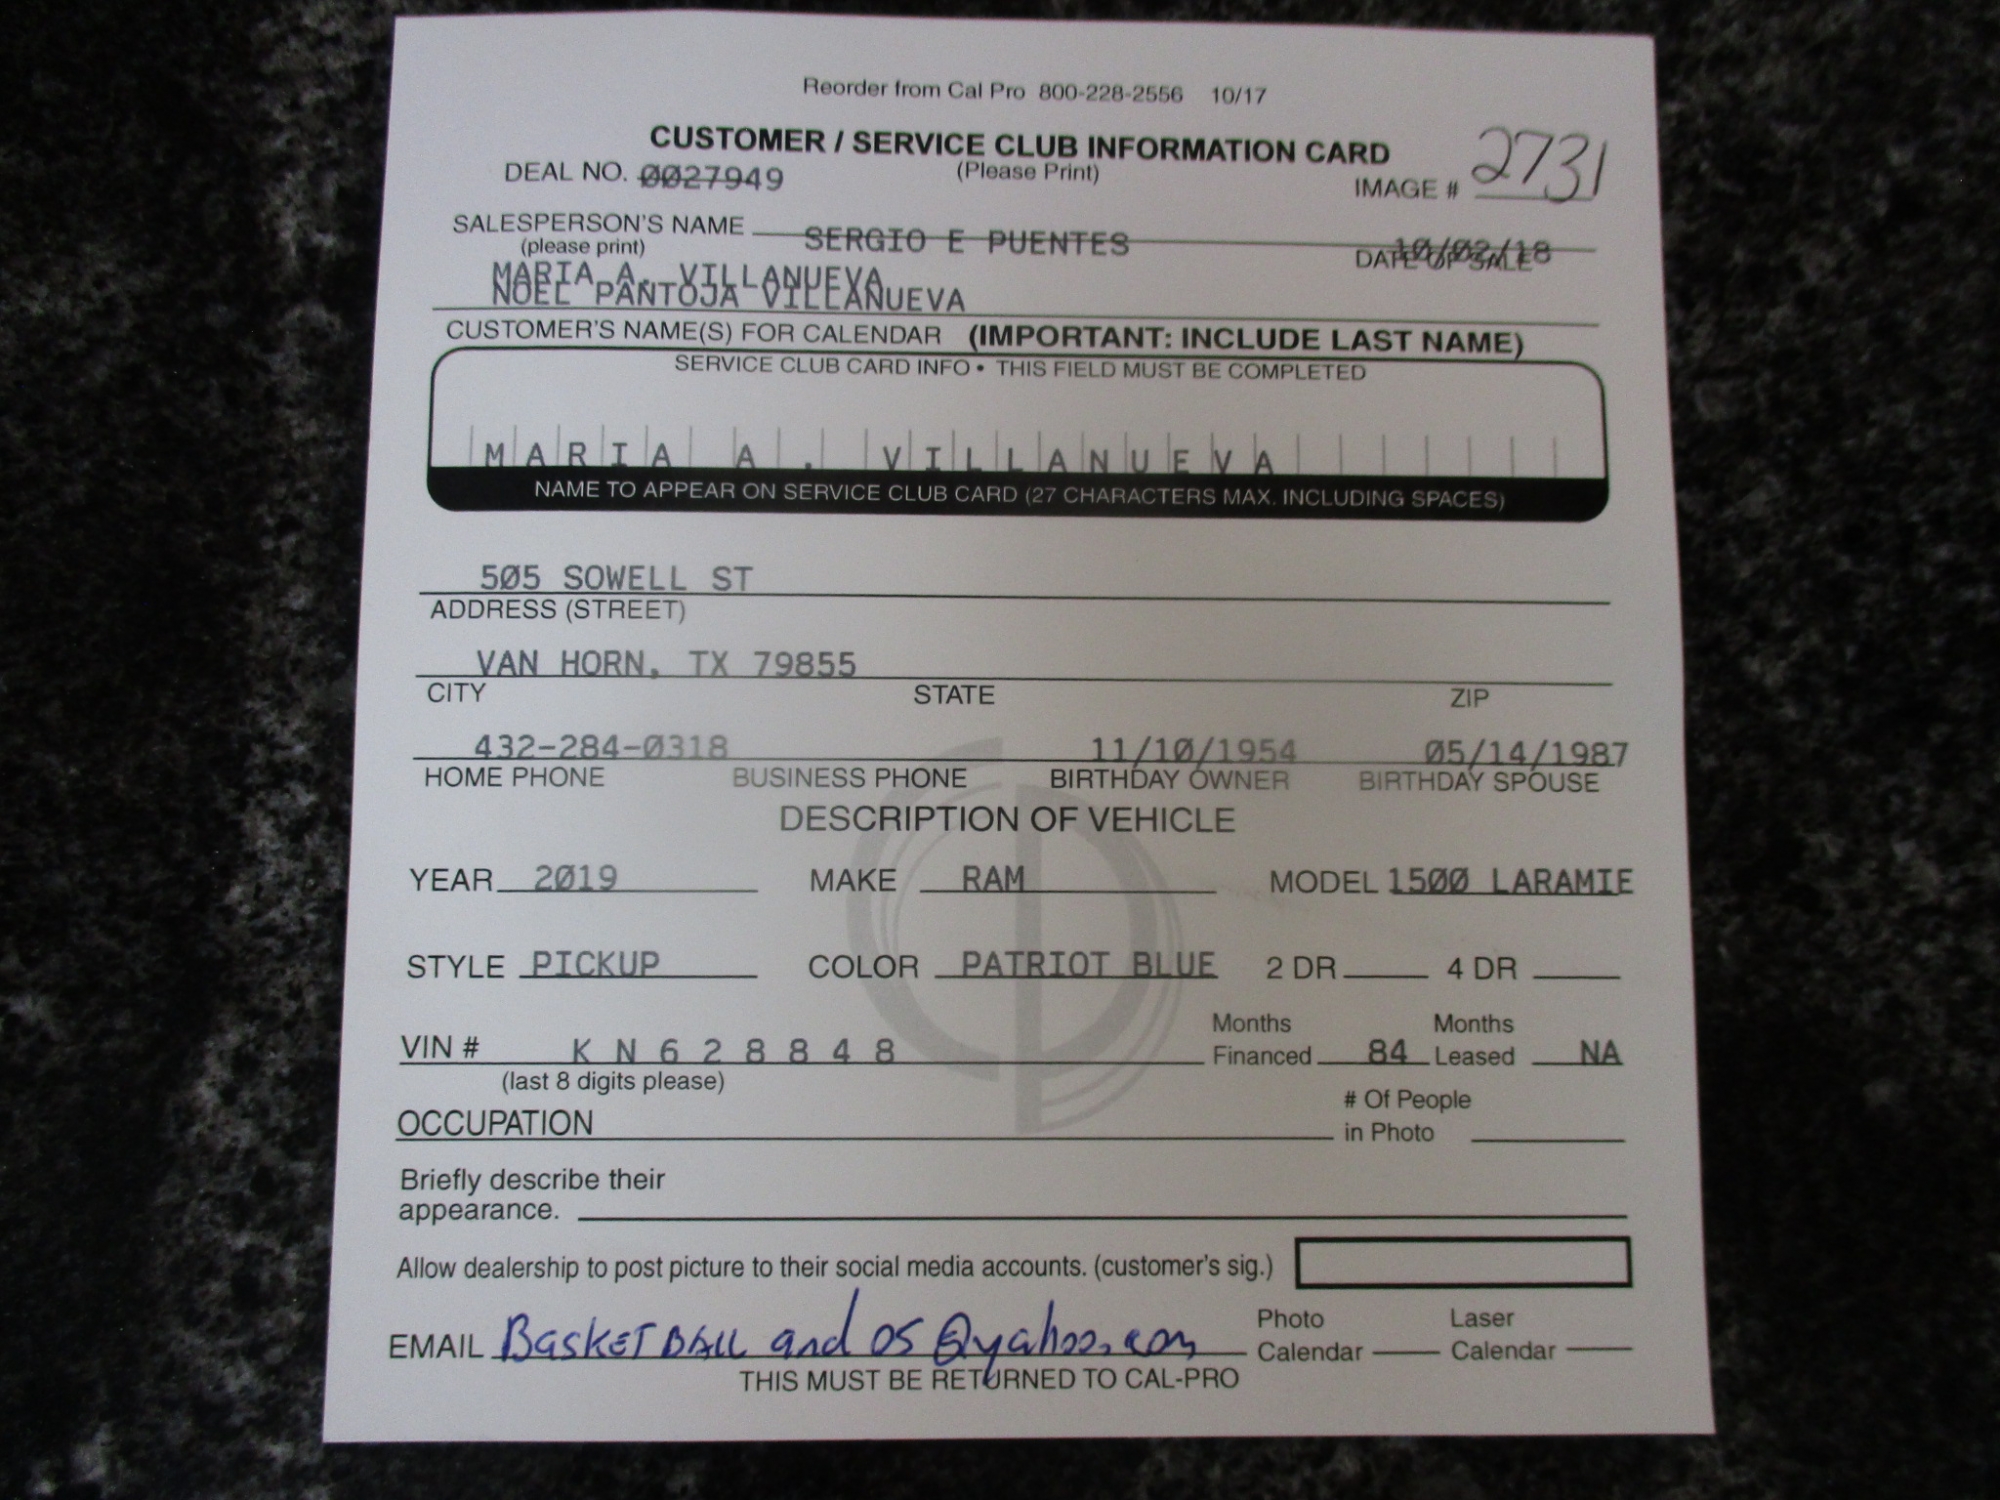 Reorder from Cal Pro 800-228-2556 10/17
CUSTOMER / SERVICE CLUB INFORMATION CARD
DEAL NO. 0027949 (Please Print) IMAGE # 2731
SALESPERSON'S NAME SERGIO E PUENTES
(please print) DATE OF SALE 10/02/18
MARIA A. VILLANUEVA
NOEL PANTOJA VILLANUEVA
CUSTOMER'S NAME(S) FOR CALENDAR (IMPORTANT: INCLUDE LAST NAME)
SERVICE CLUB CARD INFO • THIS FIELD MUST BE COMPLETED
MARIA A. VILLANUEVA
NAME TO APPEAR ON SERVICE CLUB CARD (27 CHARACTERS MAX. INCLUDING SPACES)
505 SOWELL ST
ADDRESS (STREET)
VAN HORN, TX 79855
CITY STATE ZIP
432-284-0318 11/10/1954 05/14/1987
HOME PHONE BUSINESS PHONE BIRTHDAY OWNER BIRTHDAY SPOUSE
DESCRIPTION OF VEHICLE
YEAR 2019 MAKE RAM MODEL 1500 LARAMIE
STYLE PICKUP COLOR PATRIOT BLUE 2 DR 4 DR
VIN # KN628848 Months Financed 84 Months Leased NA
(last 8 digits please)
OCCUPATION # Of People in Photo
Briefly describe their
appearance.
Allow dealership to post picture to their social media accounts. (customer's sig.)
EMAIL BasketBall and 05@yahoo.com Photo Calendar Laser Calendar
THIS MUST BE RETURNED TO CAL-PRO